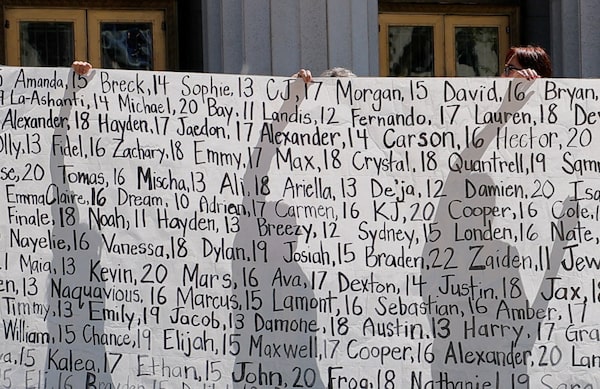 Amanda, 15 Breck, 14 Sophie, 13 CJ, 17 Morgan, 15 David, 16 Bryan,
La-Ashanti, 14 Michael, 20 Bay, 11 Landis, 12 Fernando, 17 Lauren, 18
Alexander, 18 Hayden, 17 Jaedon, 17 Alexander, 14 Carson, 16 Hector, 20
13 Fidel, 16 Zachary, 18 Emmy, 17 Max, 18 Crystal, 18 Quantrell, 19
20 Tomas, 16 Mischa, 13 Ali, 18 Ariella, 13 De'ja, 12 Damien, 20
EmmaClaire, 16 Dream, 10 Adrien, 17 Carmen, 16 KJ, 20 Cooper, 16 Cole,
Finale, 18 Noah, 11 Hayden, 13 Breezy, 12 Sydney, 15 Londen, 16 Nate,
Nayelie, 16 Vanessa, 18 Dylan, 19 Josiah, 15 Braden, 22 Zaiden, 11
Maia, 13 Kevin, 20 Mars, 16 Ava, 17 Dexton, 14 Justin, 18 Jax,
13 Naquavious, 16 Marcus, 15 Lamont, 16 Sebastian, 16 Amber, 17
Timmy, 13 Emily, 19 Jacob, 13 Damone, 18 Austin, 13 Harry, 17
William, 15 Chance, 19 Elijah, 15 Maxwell, 17 Cooper, 16 Alexander, 20
15 Kalea, 17 Ethan, 15 John, 20 Frog, 18 Nathaniel